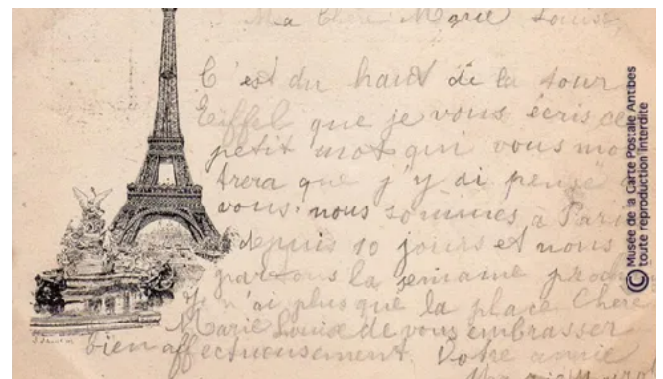 Ma Chere Marie Louise
C'est du haut de la tour
Eiffel que je vous écris ce
petit mot qui vous mo
trera que j'y ai pensé
vous. nous sommes a Paris
depuis 10 jours et nous
partons la semaine proch
Je n'ai plus que la place Chere
Marie Louise de vous embrasser
bien affectueusement Votre amie
© Musée de la Carte Postale Antibes
toute reproduction interdite